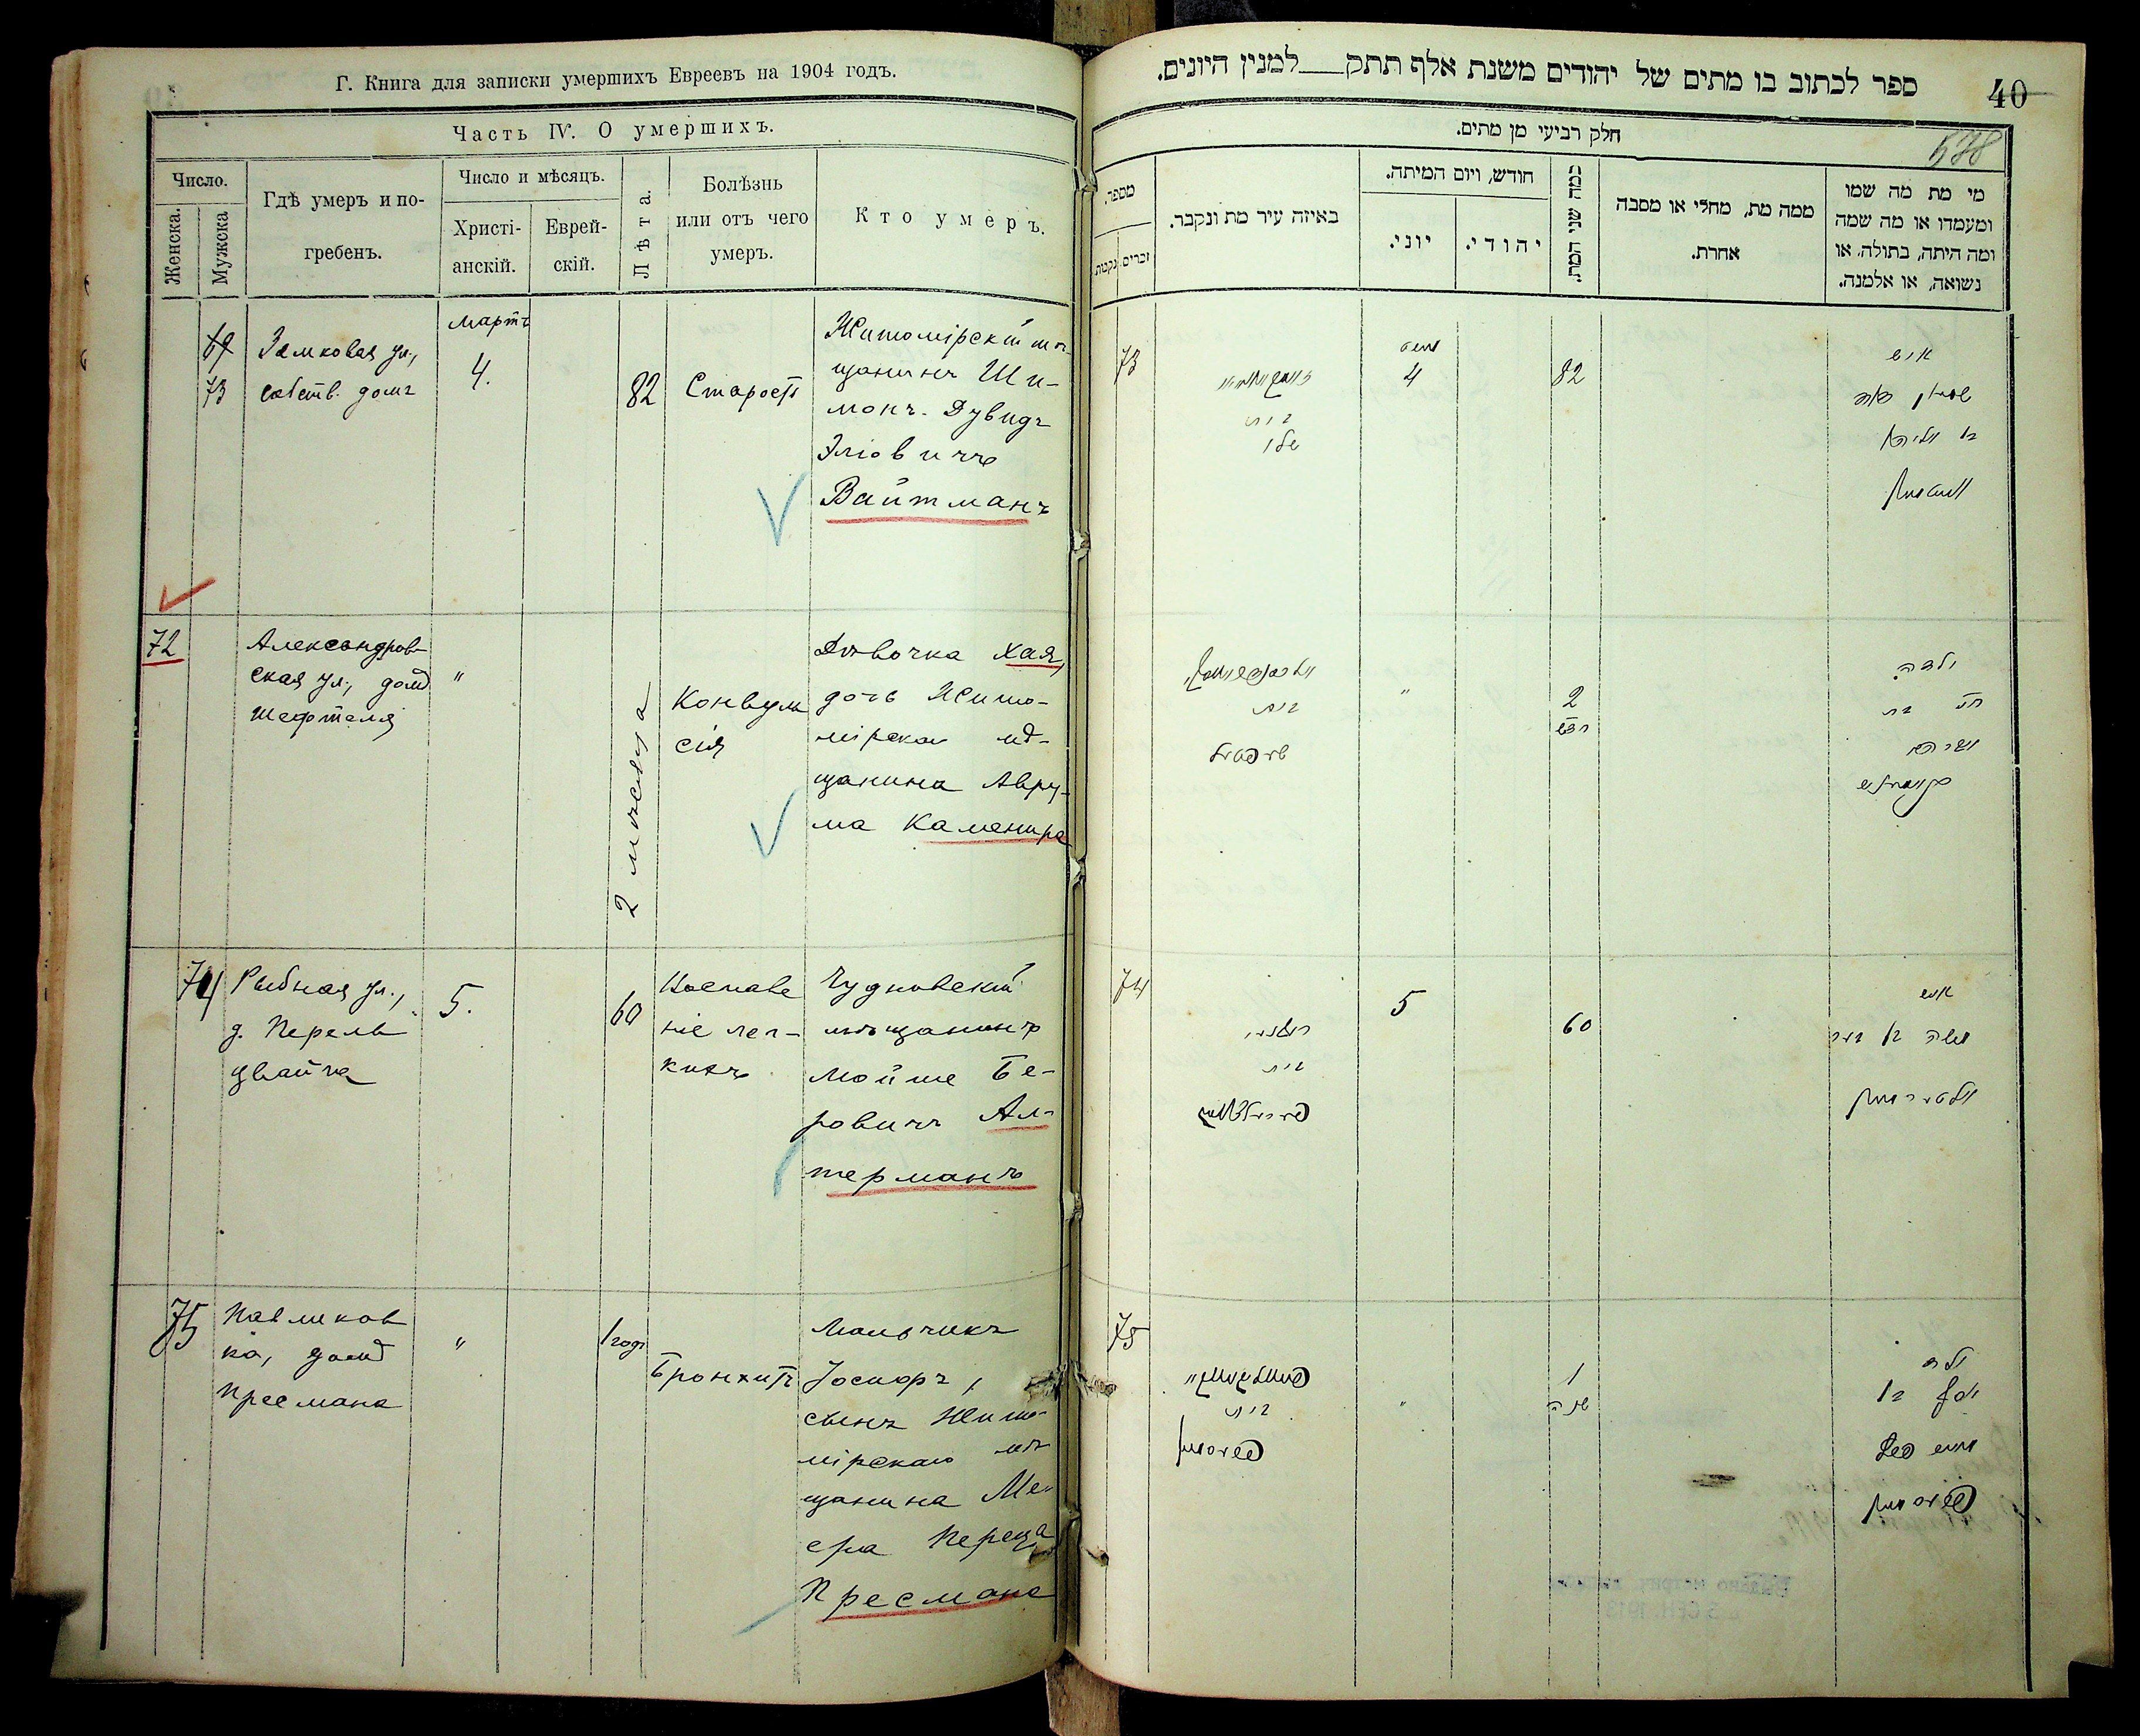 Г. Книга для записки умершихъ Евреевъ на 1904 годъ.
Часть IV. О умершихъ.
Число.
Женска.
Мужска
Гдѣ умеръ и по-
гребенъ.
Число и мѣсяцъ.
Христі-
анскій.
Еврей-
скій.
Лѣта.
Болѣзнь
или отъ чего
умеръ.
Кто умеръ.
73
Замковая ул.,
собств. домъ
Мартъ
4.
82
Старость
Житомірскій мѣ-
щанинъ Ши-
монъ-Дувидъ
Эліовичъ
Вайтманъ
72
Александров-
ская ул., домъ
Шефтеля
"
2 мѣсяца
Конвуль
сія
Дѣвочка Хая,
дочь Жито-
мірскаго мѣ-
щанина Авру-
ма Каменира
74
Рыбная ул.,
д. Перель
цвайга
5.
60
Воспале
ніе лег-
кихъ
Чудновскій
мѣщанинъ
Мойше Бе-
ровичъ Ал-
терманъ
75
Павликов
ка, домъ
Пресмана
"
1 годъ
Бронхитъ
Мальчикъ
Іосифъ,
сынъ Жито-
мірскаго мѣ-
щанина Ме-
ера Переца
Пресмана
ספר לכתוב בו מתים של יהודים משנת אלף תתק למנין היונים.
40
578
חלק רביעי מן מתים.
מספר.
זכרים.
נקבות.
באיזה עיר מת ונקבר.
חודש, ויום המיתה.
יוני.
יהודי.
כמה שני המת.
ממה מת, מחלי או מסבה
אחרת.
מי מת מה שמו
ומעמדו או מה שמה
ומה היתה, בתולה, או
נשואה, או אלמנה.
73
בית
שלו
4
82
איש
שמעון דוד
בן אליהו
ווייטמאן
בית
שעפטעל
"
2
חדש
ילדה
חי' בת
אברהם
קאמעניר
74
בית
5
60
איש
משה בן בער
אלטערמאן
75
בית
פרעסמאן
"
1
שנה
ילד
יוסף בן
מאיר פרץ
פרעסמאן